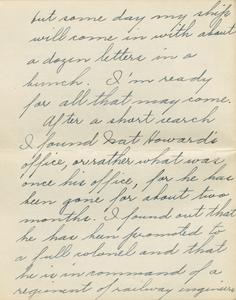 but some day my ship
will come in with about
a dozen letters in a
bunch. I'm ready
for all that may come.
After a short search
I found Nat Howard's
office, or rather what was
once his office, for he has
been gone for about two
months. I found out that
he has been promoted to
a full colonel and that
he is in command of a
regiment of railway engineers